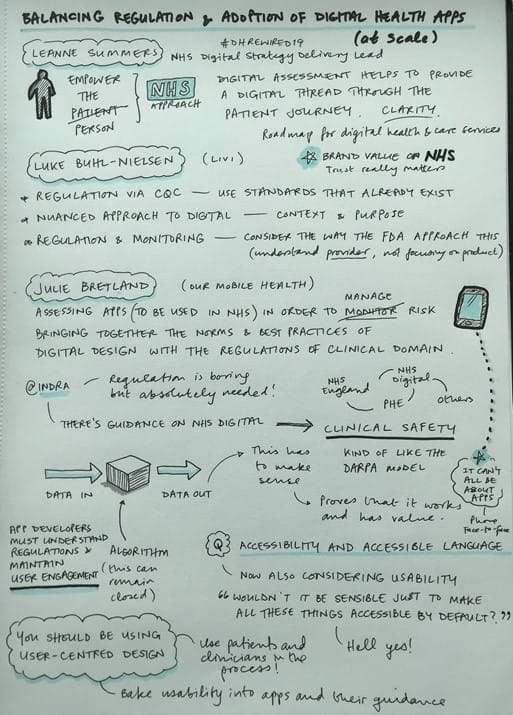 BALANCING REGULATION & ADOPTION OF DIGITAL HEALTH APPS
(at scale)
LEANNE SUMMERS
#DHREWIRED19
NHS Digital Strategy Delivery Lead
EMPOWER
THE
PATIENT
PERSON
NHS
APPROACH
DIGITAL ASSESSMENT HELPS TO PROVIDE
A DIGITAL THREAD THROUGH THE
PATIENT JOURNEY. CLARITY.
Roadmap for digital health & care services
LUKE BUHL-NIELSEN (LIVI)
BRAND VALUE OF NHS
Trust really matters
REGULATION VIA CQC — USE STANDARDS THAT ALREADY EXIST
NUANCED APPROACH TO DIGITAL — CONTEXT & PURPOSE
REGULATION & MONITORING — CONSIDER THE WAY THE FDA APPROACH THIS
(understand provider, not focusing on product)
JULIE BRETLAND (OUR MOBILE HEALTH)
MANAGE
ASSESSING APPS (TO BE USED IN NHS) IN ORDER TO MONITOR RISK
BRINGING TOGETHER THE NORMS & BEST PRACTICES OF
DIGITAL DESIGN WITH THE REGULATIONS OF CLINICAL DOMAIN.
@INDRA
Regulation is boring
but absolutely needed!
NHS
England
NHS
Digital
PHE
others
THERE'S GUIDANCE ON NHS DIGITAL
CLINICAL SAFETY
KIND OF LIKE THE
DARPA MODEL
DATA IN
DATA OUT
This has
to make
sense
Proves that it works
and has value.
IT CAN'T
ALL BE
ABOUT
APPS
Phone
Face-to-face
APP DEVELOPERS
MUST UNDERSTAND
REGULATIONS &
MAINTAIN
USER ENGAGEMENT
ALGORITHM
(this can
remain
closed)
Q ACCESSIBILITY AND ACCESSIBLE LANGUAGE
NOW ALSO CONSIDERING USABILITY
"WOULDN'T IT BE SENSIBLE JUST TO MAKE
ALL THESE THINGS ACCESSIBLE BY DEFAULT?"
Hell yes!
YOU SHOULD BE USING
USER-CENTRED DESIGN
Use patients and
clinicians in the
process!
Bake usability into apps and their guidance